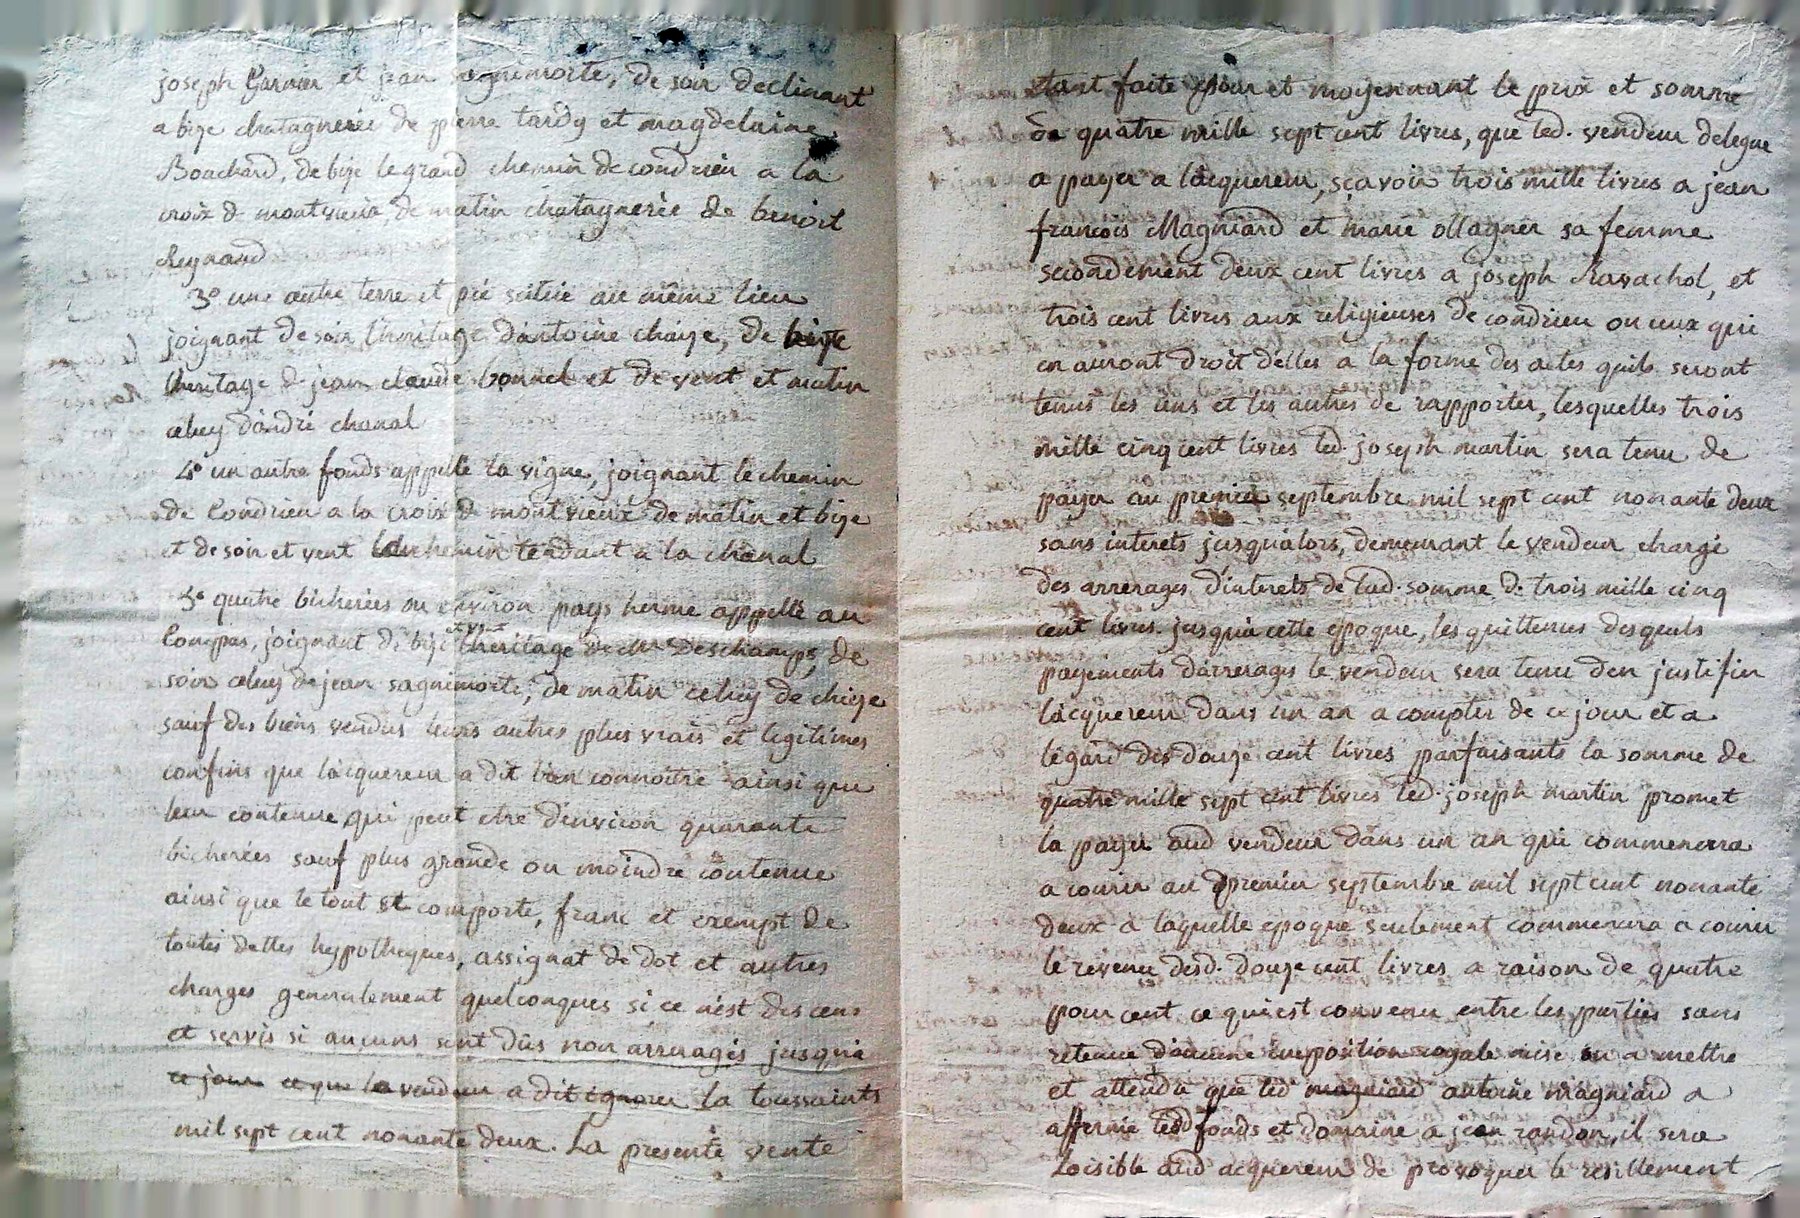 joseph Garnier et jean sagnimorte, de soir declinant
a bize chatagnerée de pierre tardy et magdelaine
Bouchard, de bize le grand chemin de condrieu a la
croix d montvieux de matin chatagnerée de benoit
Reynaud
3° une autre terre et pré scitué au même lieu
joignant de soir l'heritage dantoine chaize, de bize
lheritage d jean claude bonnel et de vent et matin
celuy dandré chanal
4° un autre fonds appellé la vigne, joignant le chemin
de Condrieu a la croix d montvieux de matin et bize
et de soir et vent le chemin tendant a la chanal
5° quatre bicherées ou environ pays herme appellé au
Compas, joignant de bize et vent lheritage de Mr Deschamps, de
soir celuy de jean sagnimorte, de matin celuy de chieze
sauf des biens vendus leurs autres plus vrais et legitimes
confins que lacquereur a dit bien connoitre ainsi que
leur contenue qui peut etre d'environ quarante
bicherées sauf plus grande ou moindre contenue
ainsi que le tout se comporte, franc et exempt de
toutes dettes hypotheques, assignat de dot et autres
charges generalement quelconques si ce nést des cens
et servis si aucuns sont dûs non arreragés jusqu'a
ce jour ce que le vendeur a dit ignorer la toussaints
mil sept cent nonante deux. La presente vente
etant faite pour et moyennant le prix et somme
de quatre mille sept cent livres, que led. vendeur delegue
a payer a lacquereur, sçavoir trois mille livres a jean
francois Magniard et marie ollagner sa femme
secondement deux cent livres a joseph Ravachol, et
trois cent livres aux religieuses de condrieu ou ceux qui
en auront droit d'elles a la forme des actes quils seront
tenus les uns et les autres de rapporter, lesquelles trois
mille cinq cent livres led. joseph martin sera tenu de
payer au premier septembre mil sept cent nonante deux
sans interets jusqualors, demeurant le vendeur chargé
des arrerages d'interets de lad. somme d. trois mille cinq
cent livres jusqu'a cette epoque, les quittences desquels
payements darrerages le vendeur sera tenu den justifier
lacquereur dans un an a compter de ce jour et a
legard des douze cent livres parfaisants la somme de
quatre mille sept cent livres led. joseph martin promet
la payer aud vendeur dans un an qui commencera
a courir au premier septembre mil sept cent nonante
deux a laquelle epoque seulement commencera a courir
le revenu desd. douze cent livres a raison de quatre
pour cent ce qui est convenu entre les parties sans
retenue d'aucune imposition royale mise ou a mettre
et attendu que led magniard antoine magniard a
affermé lesd fonds et domaine a jean randon, il sera
loisible aud acquereur de provoquer le resillement